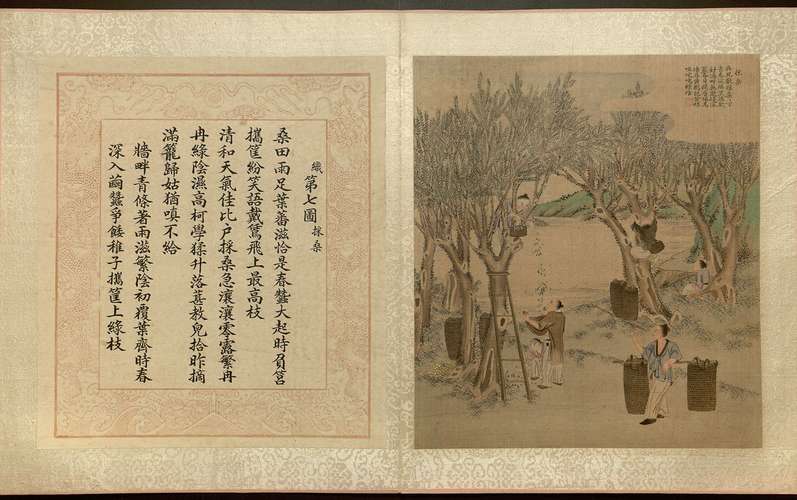 織第七圖採桑
桑田雨足葉蕃滋恰是春蠶大起時負筥
攜筐紛笑語戴鵀飛上最高枝
清和天氣佳比户採桑急瀼瀼零露繁冉
冉綠陰濕高柯學猱升落葚教兒拾昨摘
滿籠歸姑猶嗔不給
牆畔青條著雨滋繁陰初覆葉齊時春
深入繭蠶爭餧稚子攜筐上綠枝
採桑